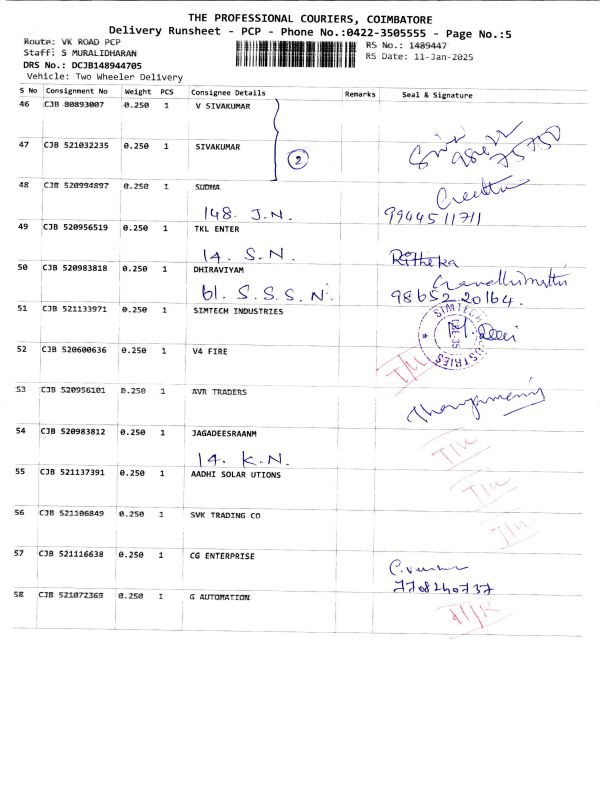 THE PROFESSIONAL COURIERS, COIMBATORE
Delivery Runsheet - PCP - Phone No.:0422-3505555 - Page No.:5
Route: VK ROAD PCP
RS No.: 1489447
Staff: S MURALIDHARAN
RS Date: 11-Jan-2025
DRS No.: DCJB148944705
Vehicle: Two Wheeler Delivery
S No Consignment No Weight PCS Consignee Details Remarks Seal & Signature
46 CJB 80893007 0.250 1 V SIVAKUMAR
47 CJB 521032235 0.250 1 SIVAKUMAR
2
48 CJB 520994897 0.250 1 SUDHA
148. J.N. 9944511711
49 CJB 520956519 0.250 1 TKL ENTER
14. S.N. Ritheka
50 CJB 520983818 0.250 1 DHIRAVIYAM
61. S.S.S.N. 98652 20164.
51 CJB 521133971 0.250 1 SIMTECH INDUSTRIES
SIMTECH INDUSTRIES
52 CJB 520600636 0.250 1 V4 FIRE
53 CJB 520956101 0.250 1 AVR TRADERS
54 CJB 520983812 0.250 1 JAGADEESRAANM
14. K.N.
55 CJB 521137391 0.250 1 AADHI SOLAR UTIONS
56 CJB 521106849 0.250 1 SVK TRADING CO
57 CJB 521116638 0.250 1 CG ENTERPRISE
7708240737
58 CJB 521072369 0.250 1 G AUTOMATION